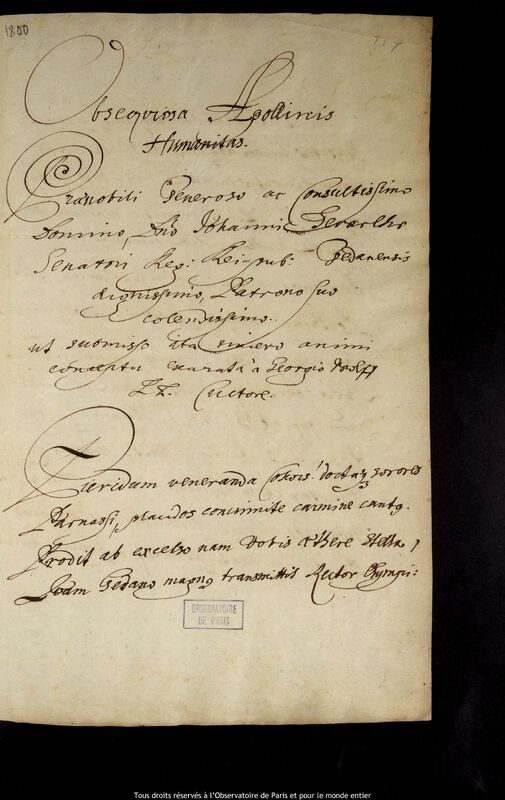 1800
Obsequiosa Apollineis
Humanitas.
Prænobili Generoso ac Consultissimo
Domino, Dno Johanni
Senatori Reg: Rei-pub: Gedanensis
dignissimo, Patrono suo
colendissimo.
ut submisso ita sincero animi
conceptu exarata à Georgio Wolff
LL. Cultore.
Pieridum veneranda cohors! doctaq3 sorores
Parnassi, placidos concinnite carmine cantq.
Prodit ab excelso nam votis æthere stella,
Quam Gedano magnq transmittit Rector Olympi:
OBSERVATOIRE
DE PARIS
Tous droits réservés à l'Observatoire de Paris et pour le monde entier